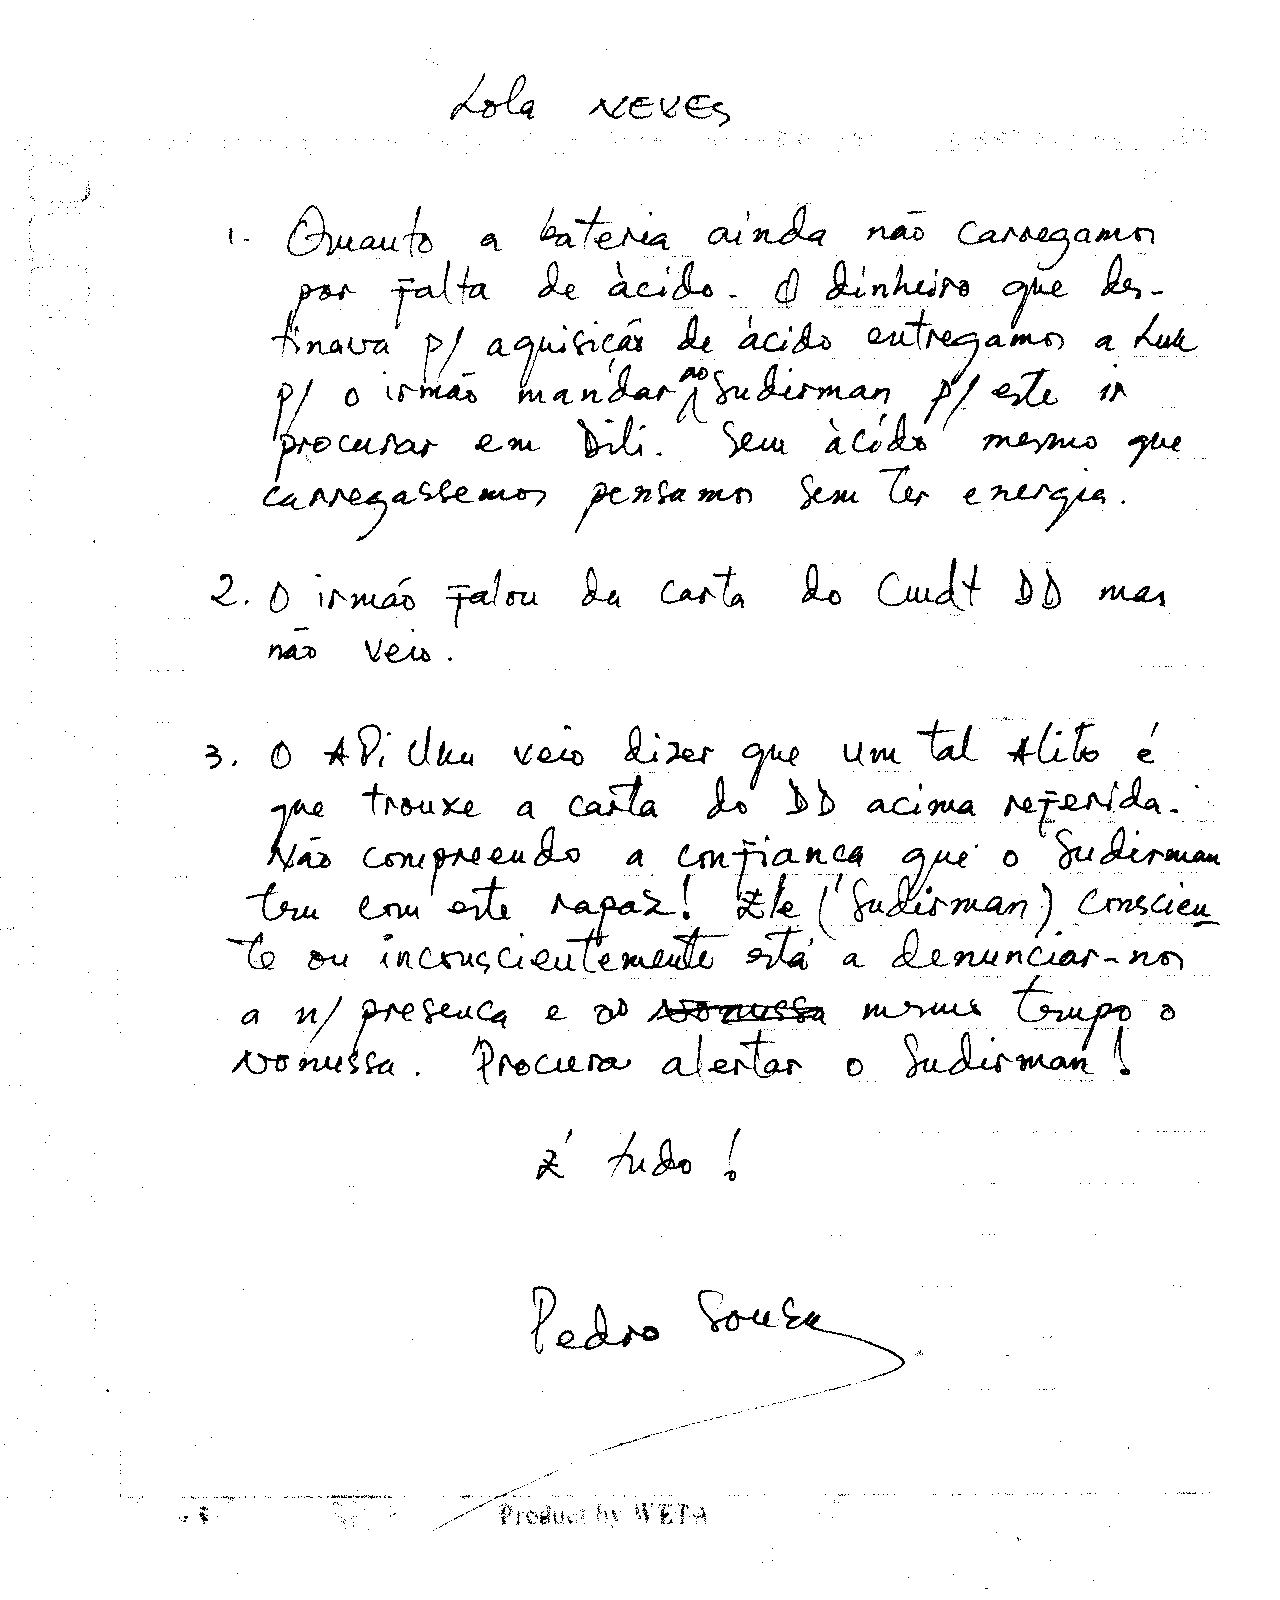 Lola NEVES
1. Quanto a bateria ainda não carregamos
por falta de àcido. O dinheiro que des-
tinava p/ aquisição de àcido entregamos a Luk
p/ o irmão mandar ao Sudirman p/ este ir
procurar em Dili. Sem àcido mesmo que
carregassemos pensamos sem ter energia.
2. O irmão falou da carta do Cmdt DD mas
não veio.
3. O APi Uku veio dizer que um tal Alito é
que trouxe a carta do DD acima referida.
Não compreendo a confiança que o Sudirman
tem com este rapaz! Ele (Sudirman) conscien
te ou inconscientemente está a denunciar-nos
a n/ presença e ao Nonussa mesmo tempo o
Nonussa. Procura alertar o Sudirman!
É tudo!
Pedro Sousa
Product by WETA